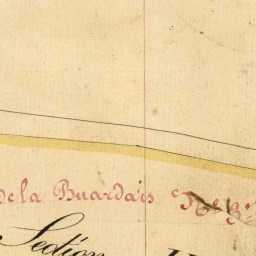 de la Buardais N° 3
Section